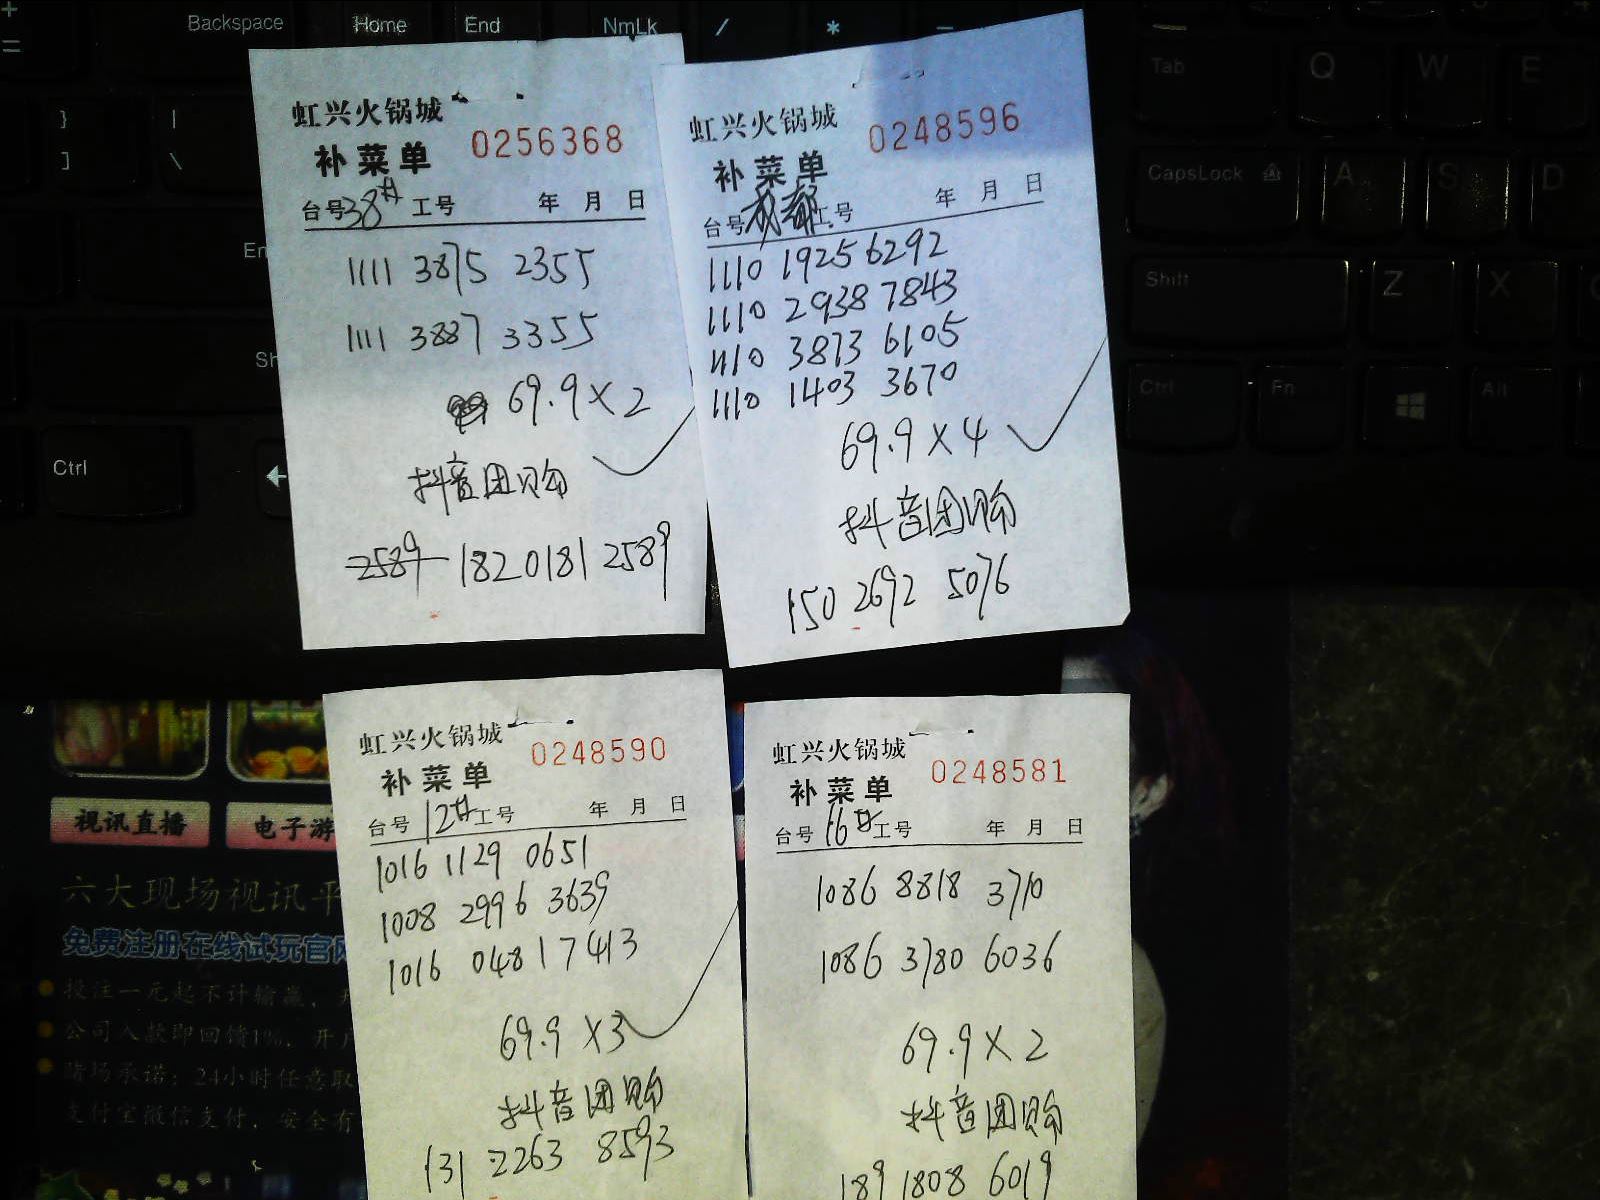 Backspace
Home
End
NmLk
/
*
Tab
Q
W
E
CapsLock
A
S
D
Shift
Z
X
Ctrl
Fn
Alt
Ctrl
虹兴火锅城
0256368
补菜单
台号 38# 工号 年 月 日
1111 3875 2355
1111 3887 3355
69.9×2
抖音团购
2589 182 0181 2589
虹兴火锅城
0248596
补菜单
台号 成都 工号 年 月 日
1110 1925 6292
1110 2938 7843
1110 3873 6105
1110 1403 3670
69.9×4
抖音团购
150 2692 5076
虹兴火锅城
0248590
补菜单
台号 12# 工号 年 月 日
1016 1129 0651
1008 2996 3639
1016 0481 7413
69.9×3
抖音团购
131 2263 8593
虹兴火锅城
0248581
补菜单
台号 16# 工号 年 月 日
1086 8818 3710
1086 3780 6036
69.9×2
抖音团购
189 1808 6019
视讯直播
电子游
六大现场视讯平
免费注册在线试玩官网
投注一元起不计输赢，
公司入款即回馈1%，开户
赌场承诺：24小时任意取
支付宝微信支付，安全有